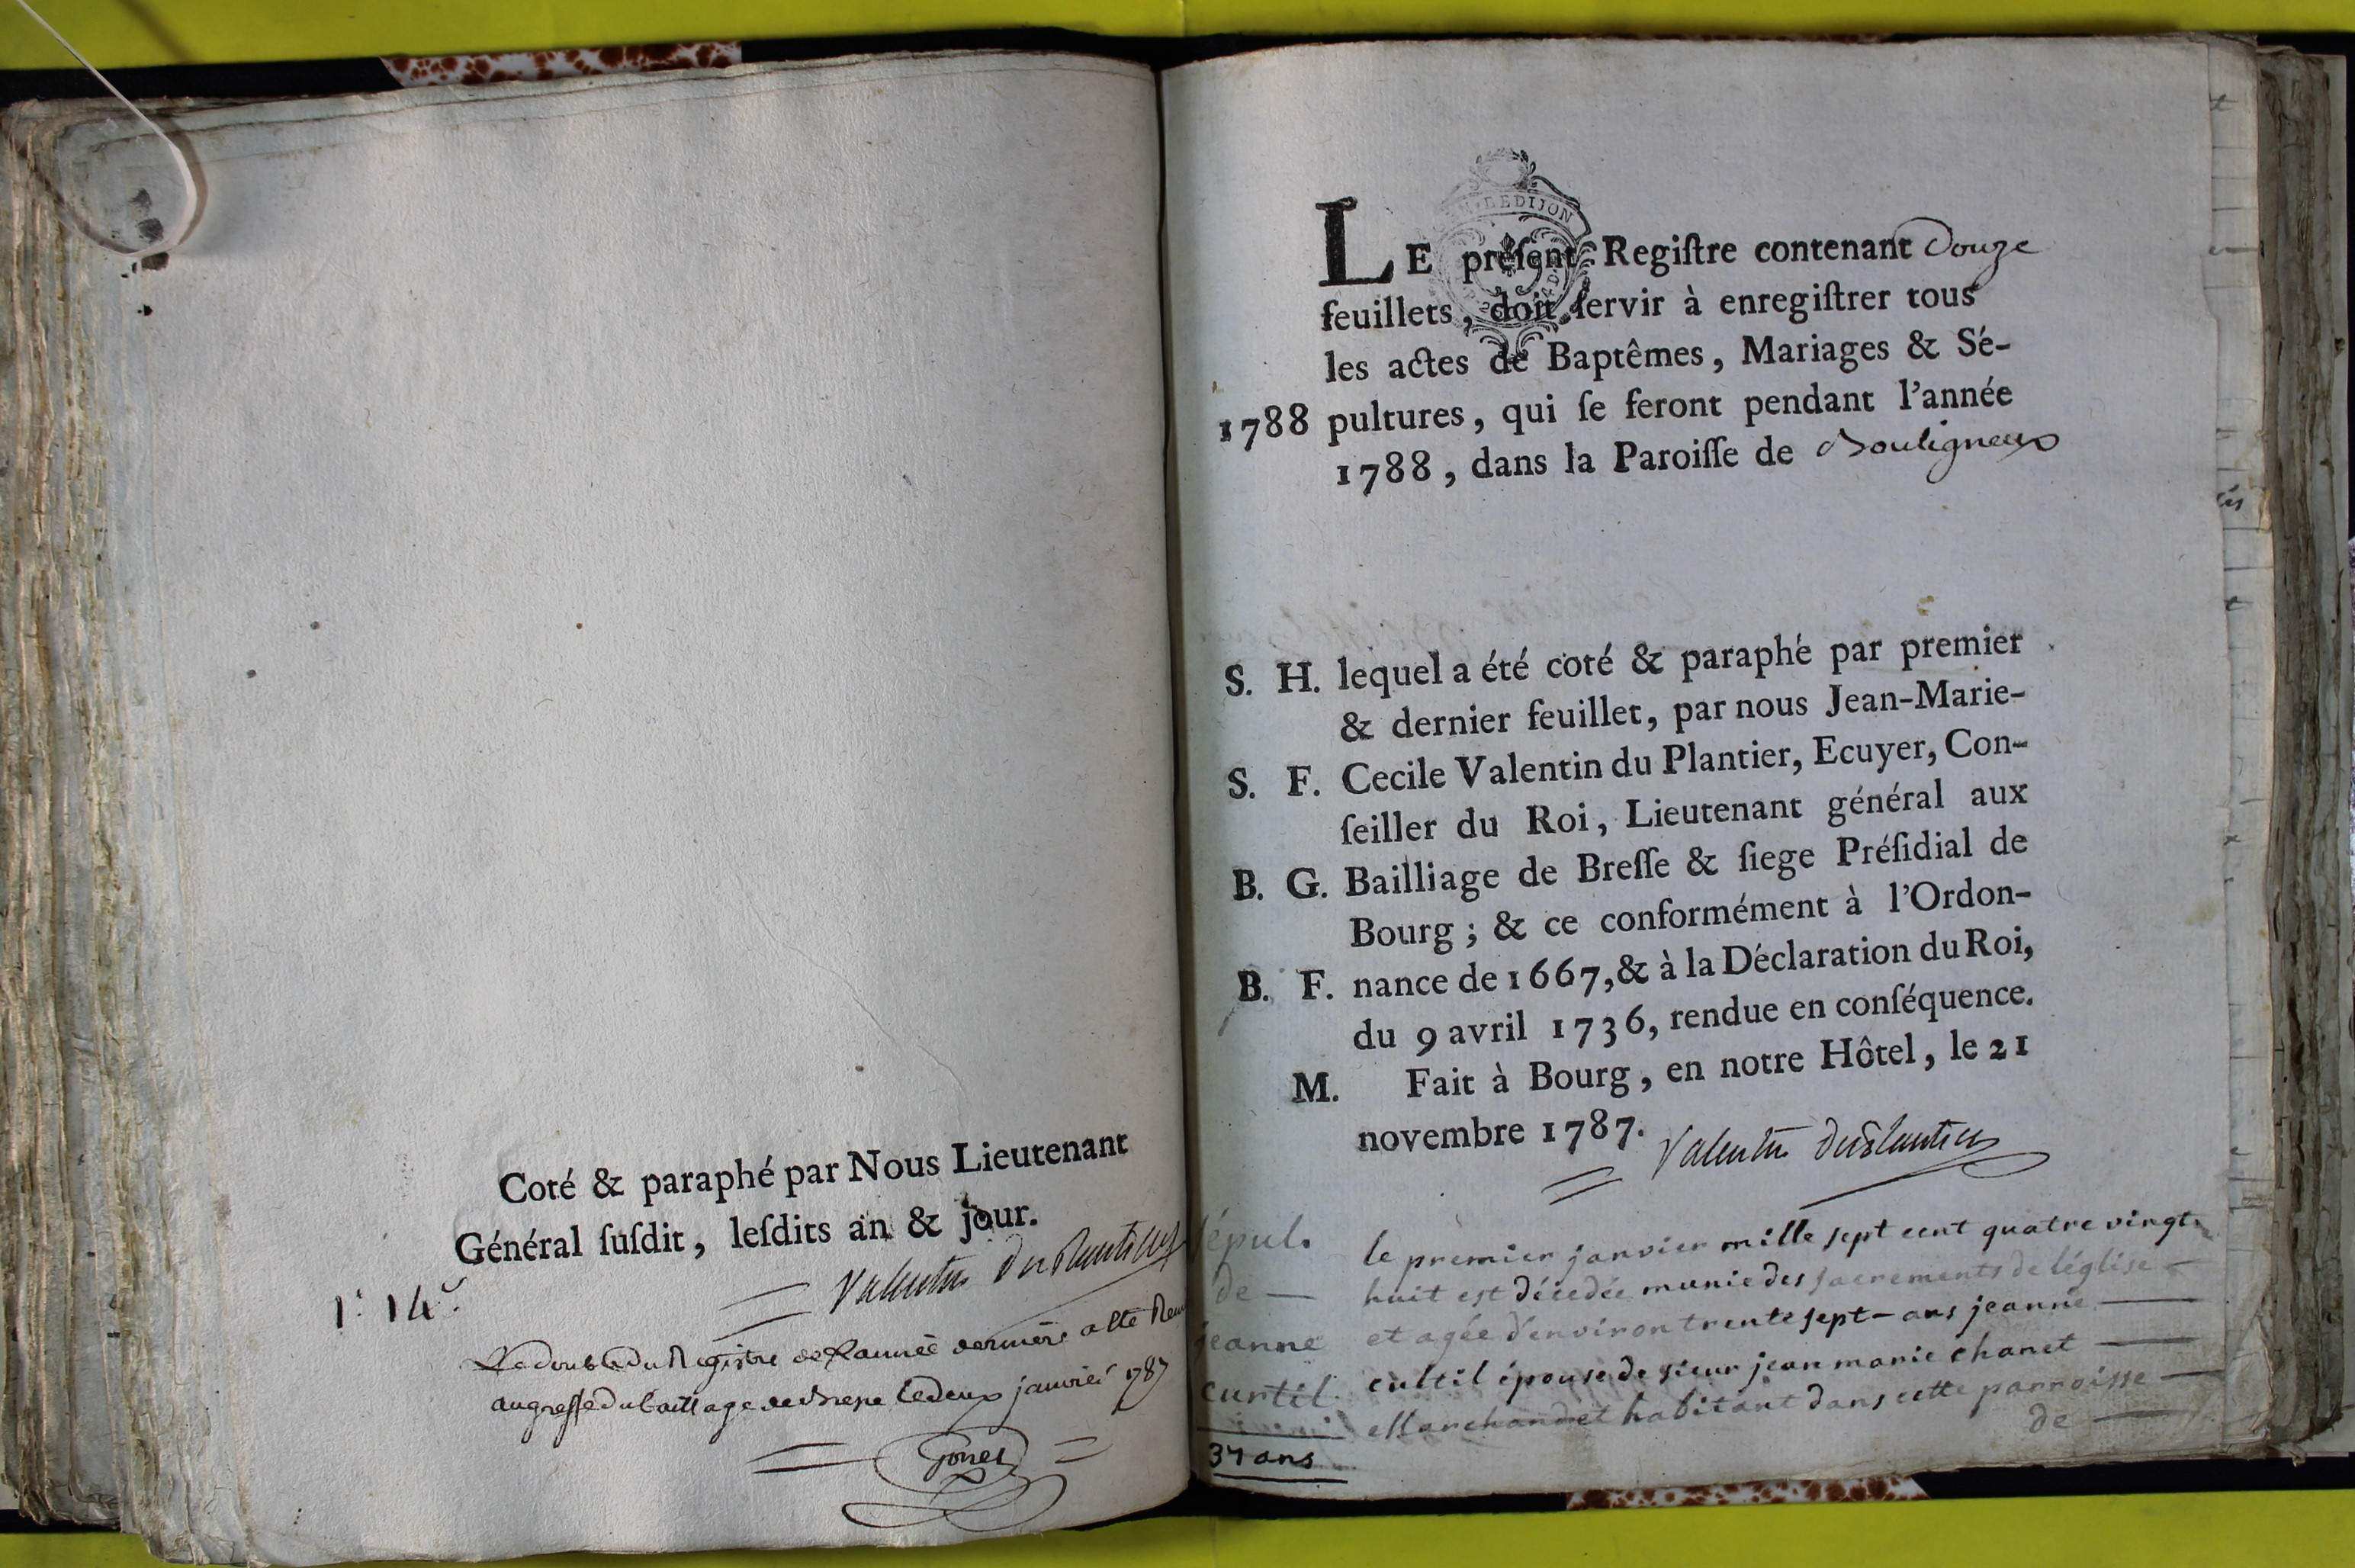 Coté & paraphé par Nous Lieutenant
Général ſuſdit, leſdits an & jour.
Valentin DuPlantier
Le double du Registre de l'année derniere a été
au greffe du bailliage de Bresse le deux janvier 1787
DEDIJON
LE préſent Regiſtre contenant Douze
feuillets, doit ſervir à enregiſtrer tous
les actes de Baptêmes, Mariages & Sé-
1788 pultures, qui ſe feront pendant l'année
1788, dans la Paroiſſe de Bouligneux
S. H. lequel a été coté & paraphé par premier
& dernier feuillet, par nous Jean-Marie-
S. F. Cecile Valentin du Plantier, Ecuyer, Con-
ſeiller du Roi, Lieutenant général aux
B. G. Bailliage de Breſſe & ſiege Préſidial de
Bourg ; & ce conformément à l'Ordon-
B. F. nance de 1667, & à la Déclaration du Roi,
du 9 avril 1736, rendue en conſéquence.
M. Fait à Bourg, en notre Hôtel, le 21
novembre 1787.
Valentin DuPlantier
sépul.
de
jeanne
curtil
37 ans
le premier janvier mille sept cent quatre vingt
huit est décedée munie des sacrements de léglise
et agée d'environ trente sept ans jeanne
cultil épouse de sieur jean marie chanet
Marchand et habitant dans cette parroisse
de